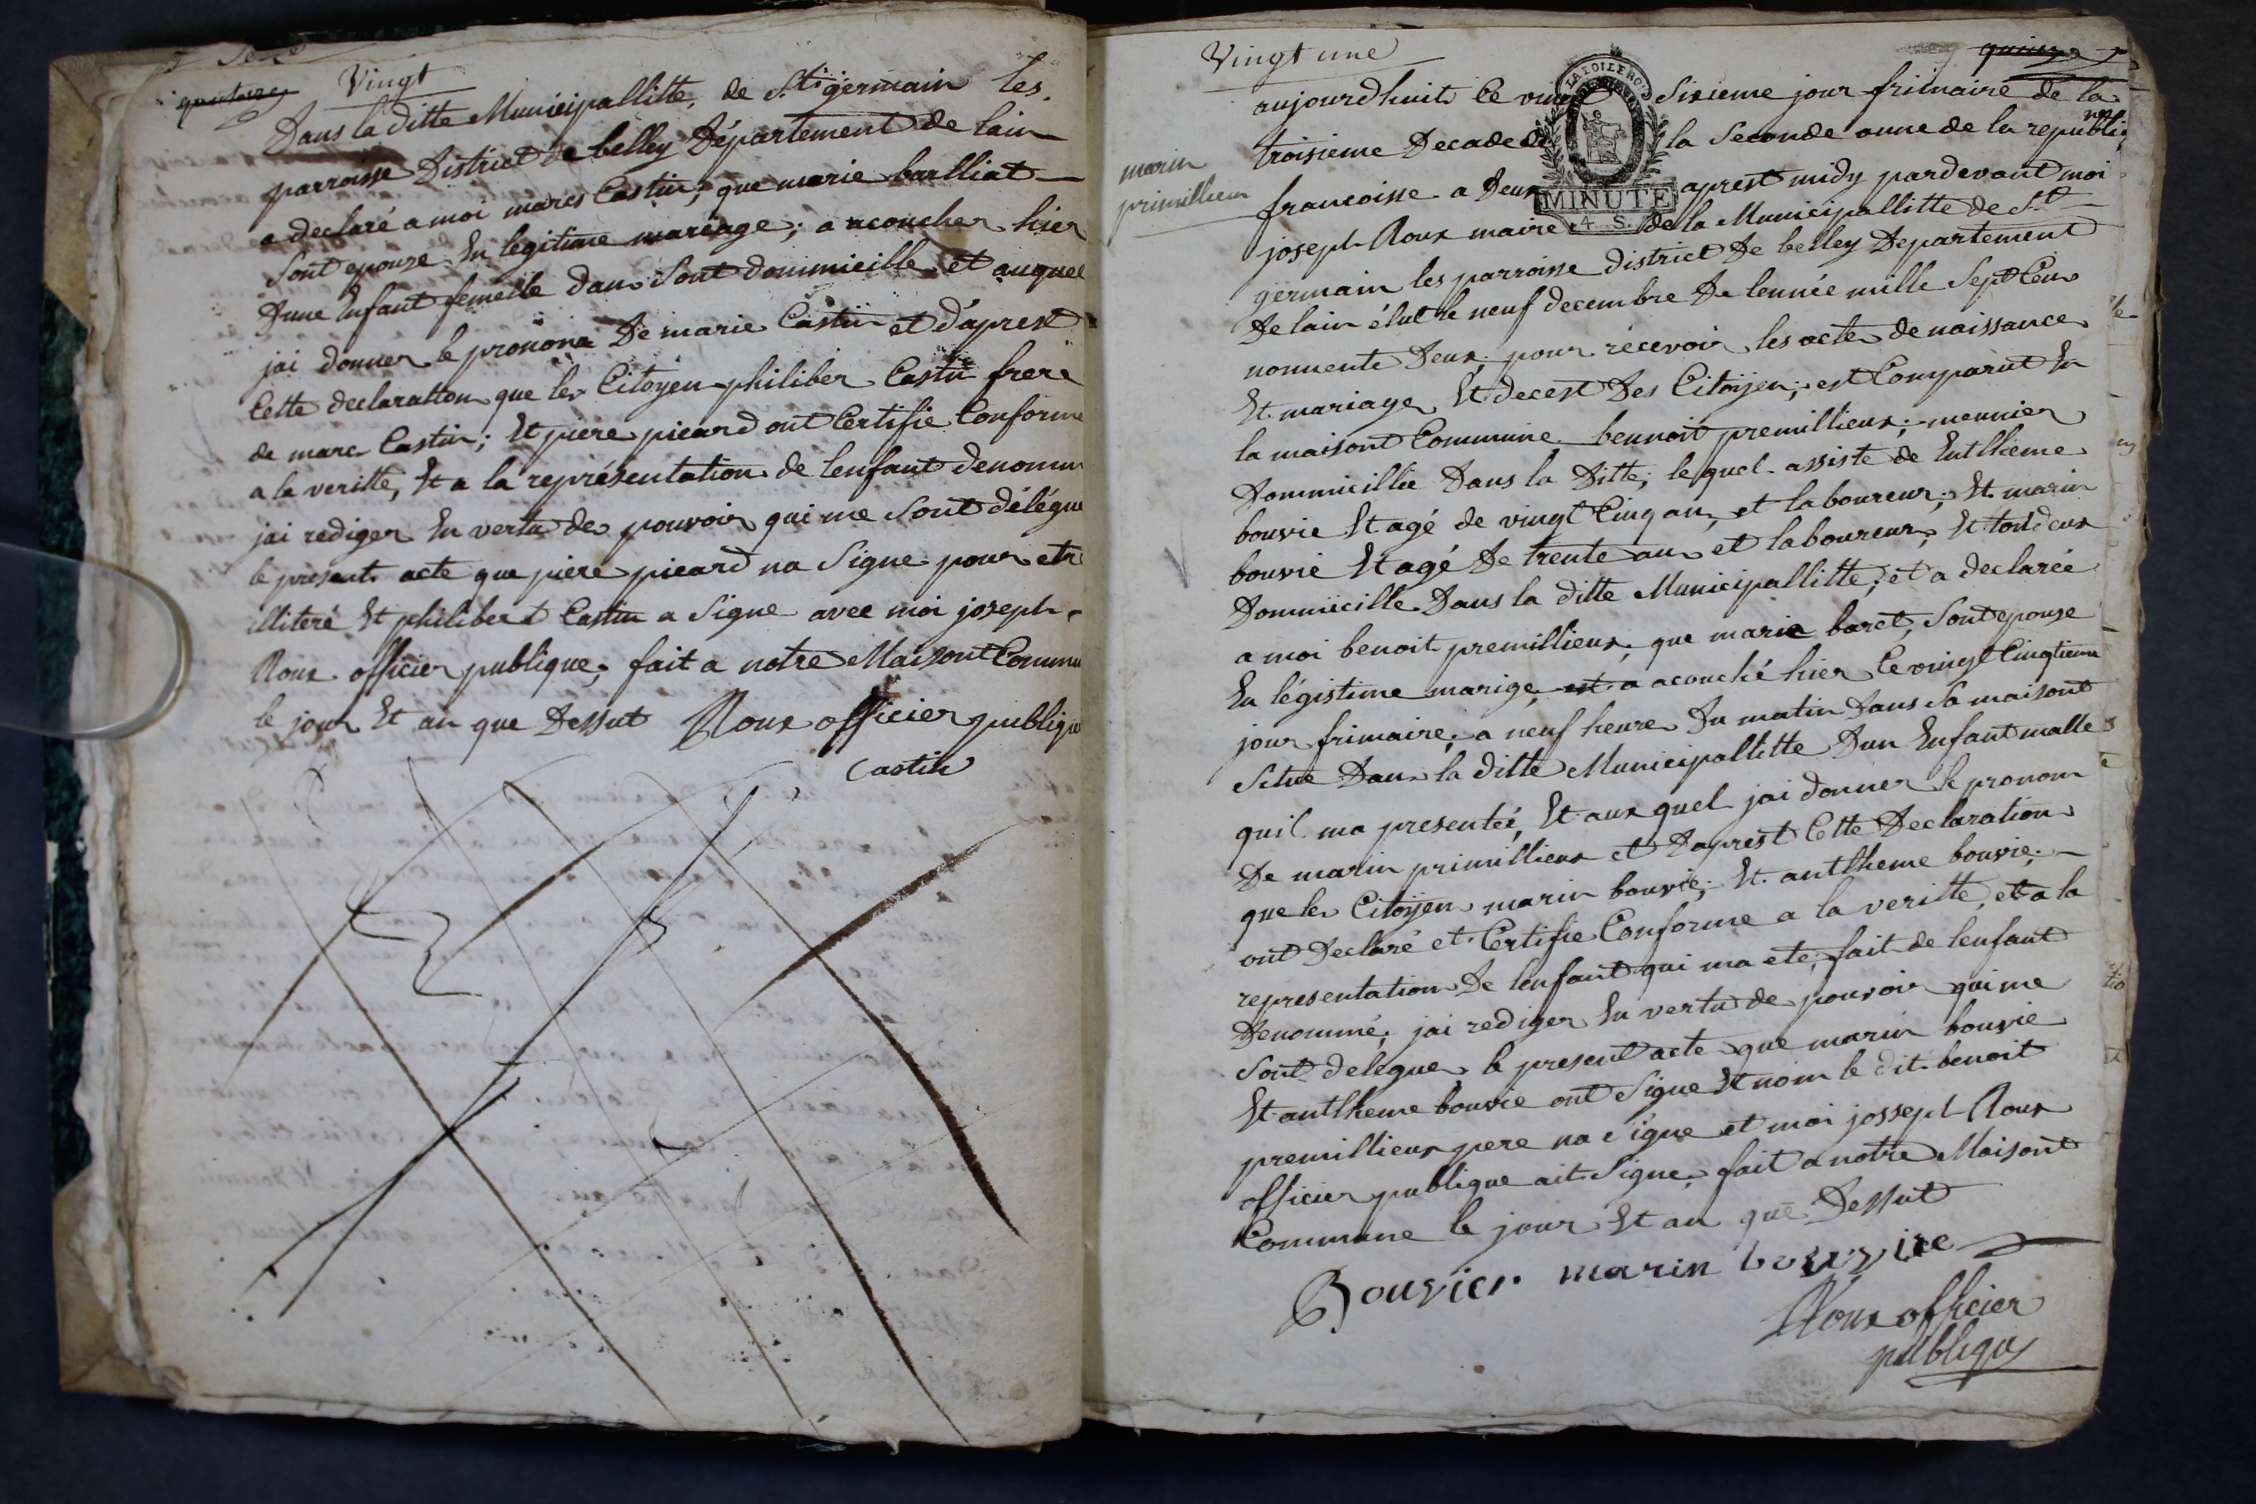 quatorze
Vingt
Dans la ditte Municipallitte, de St. germain les
parroisse District de belley Département de lain
a declaré a moi marcs Castin; que marie barlliat
Sont epouze En legitime mariage; a acoucher hier
Dune Enfant femelle dans Sont dommieille et auquel
jai donner le pronom De marie Castin et d'aprest
Cette declaration que les Citoyen philiber Castin frere
de marc Castin; Et piere picard ont Certifie Conforme
a la veritte, Et a la représentation de lenfant denomm
jai rediger En vertu de pouvoir qui me Sont délégue
le present acte que piere picard na Signe pour etre
illiteré Et philibert Castin a Signe avec moi joseph
Roux officier publique; fait a notre Maisont Commu
le jour Et an que Dessut Roux officier publique
Castin
Vingt une
quinze
aujourdhuit le vingt Sixieme jour frimaire de la
troisieme Decade de la Seconde anne de la republi
que
marin
primillieux
LA LOI LE ROI
MINUTE
4 S.
francoisse a Deux aprest midy pardevant moi
joseph Roux maire de la Municipallitte de St.
germain les parroisse district De belley Departement
De lain élut le neuf decembre De lennée mille Sept Cen
nonnente Deux pour récevoir les acte de naissance
Et mariage Et decest Des Citoijen; est Comparut En
la maisont Commune bennoit premillieux; meunier
Dommicillie Dans la Ditte; lequel assiste de Entlheme
bouvie Et agé de vingt Cinq an, et laboureur; Et marin
bouvie Et agé De trente an et laboureur; Et tousdeux
Dommicille Dans la ditte Municipallitte; et a declarée
a moi benoit premillieux; que marie boret, Sont epouze
En légistime marige, est a acouché hier le vingt Cinqtieme
jour frimaire, a neuf heure Du matin Dans Sa maisont
Situe Dans la ditte Municipallitte Dun Enfant malle
quil ma presentéé, Et aux quel jai donner le pronom
De marin primillieux et Daprest Cette Declaration
que les Citoijen marin bouvie; Et antlheme bouvie
ont Declaré et Certifie Conforme a la veritte, et a la
representation De lenfant qui ma ete, fait de lenfant
Denommé; jai rediger En vertu de pouvoir qui me
Sont deleguer le present acte que marin bouvie
Et antlheme bouvie ont Signe Et nom le dit benoit
premillieux pere na Signe et moi jossept Roux
officier publique ait Signe; fait a notre Maisont
Commune le jour Et an que Dessut
Bouvier marin bouvier
Roux officier
publique